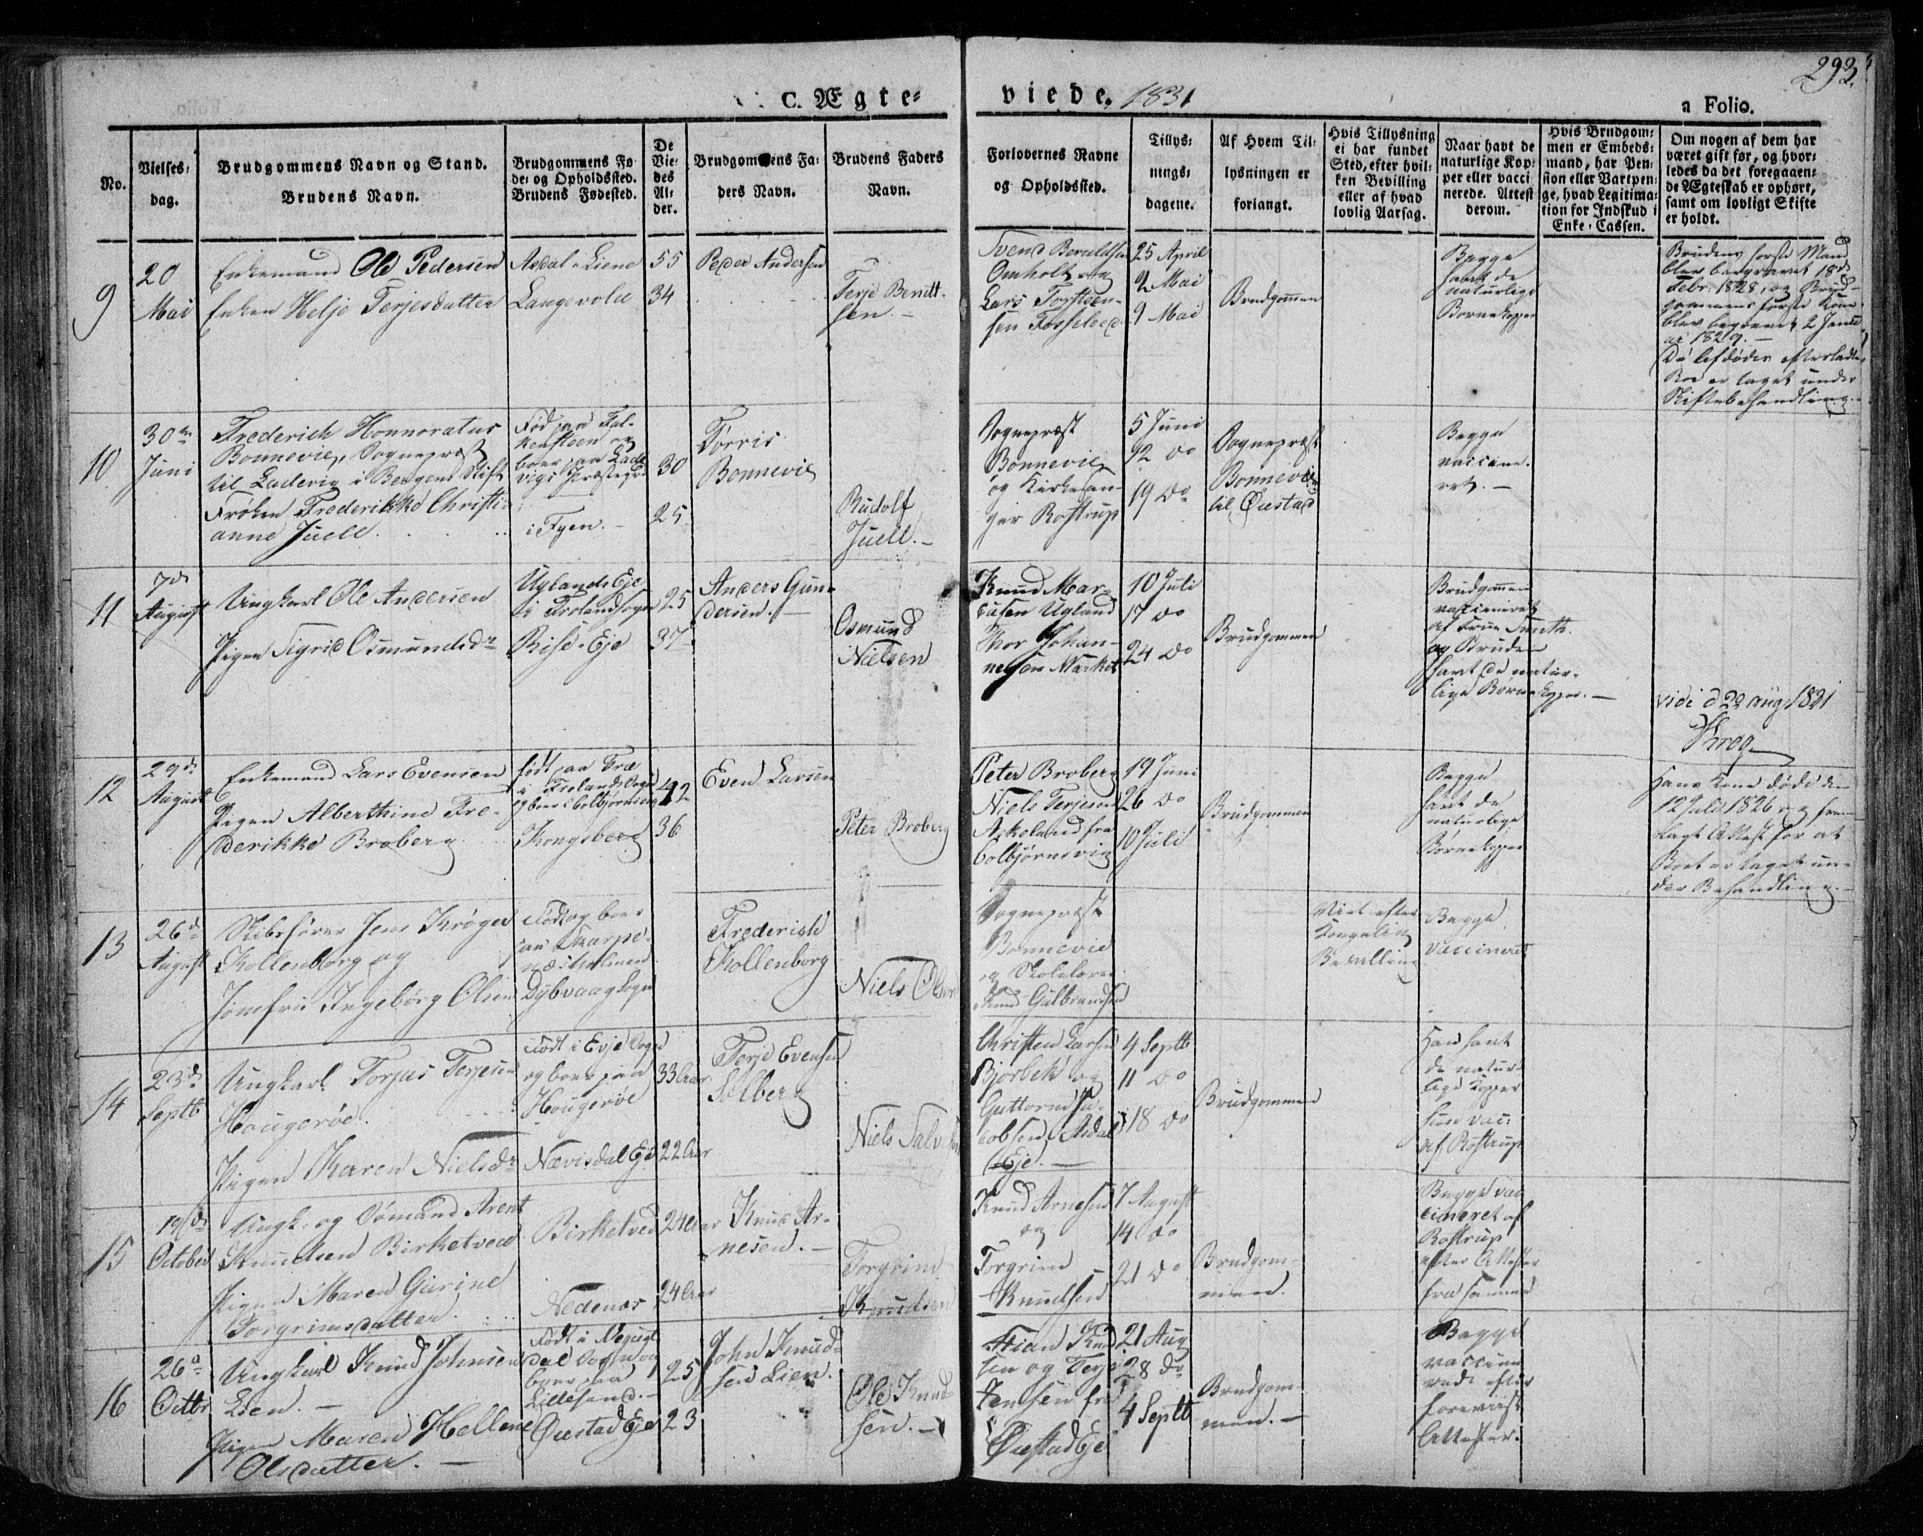 293.
C. Ægte=
viede. 1831
a Folio.
No.
Vielses-
dag.
Brudgommens Navn og Stand.
Brudens Navn.
Brudgommens Fø-
de- og Opholdssted.
Brudens Fødested.
De
Vie-
des
Al-
der.
Brudgommens Fa-
ders Navn.
Brudens Faders
Navn.
Forlovernes Navne
og Opholdssted.
Tillys-
nings-
dagene.
Af Hvem Til-
lysningen er
forlangt.
Hvis Tillysning
ei har fundet
Sted, efter hvil-
ken Bevilling
eller af hvad
lovlig Aarsag.
Naar havt de
naturlige Kop-
per eller vacci-
nerede. Attest
derom.
Hvis Brudgom-
men er Embeds-
mand, har Pen-
sion eller Vartpen-
ge, hvad Legitima-
tion for Indskud i
Enke-Cassen.
Om nogen af dem har
været gift før, og hvor-
ledes da det foregaaen-
de Ægteskab er ophørt,
samt om lovligt Skifte
er holdt.
9
20
Mai
Enkemand Ole Pedersen
Enken Helje Terjesdatter
Asdal-Liene
Langevold
55
34
Peder Andersen
Terje Berntt-
sen.-
Svend Beruldsen
Omholt og
Lars Torsteen-
sen Fosselied
25 April
2 Mai
9 Mai
Brudgommen
Begge
havt de
naturlige
Børnekopper
Brudens første Mand
blev begravet 18de
Febr. 1828, og Brud-
gommens første Kone
blev begravet 2 Janu-
ar 1829.-
De afdødes efterladte
Boe er taget under
Skiftebehandling.-
10
30te
Juni
Frederich Honnoratus
Bonnevie, Sognepræst
til Ladevig i Bergens Stift
Frøken Frederikke Christi-
anne Juell.
Fød paa Fal-
kensteen og
boer paa Lade-
vigs Præstegrd
i Fyen.-
30
25
Tørris
Bonnevie
Rudolf
Juell.-
Sognepræst
Bonnevie
og Kirkesan-
ger Rostrup
5 Juni
12 do
19 do
Sognepræst
Bonnevie
til Øiestad
Begge
vaccine-
ret.-
11
7de
August
Ungkarl Ole Andersen
Pigen Sigrid Osmundsdr
Uglands Eje
i Frolandsogn
Rise-Eje
25
37
Anders Gun-
dersen.-
Osmund
Nielsen
Knud Mar-
cusen Ugland
Thor Johan-
nesen Market
10 Juli
17 do
24 do
Brudgommen
Brudgommen
vaccineret
af Frue Smith.
og Bruden
havt de natur-
lige Børnekopper.-
vidi d 22 Aug 1831
Krog
12
29de
August
Enkemand Lars Evensen
Pigen Alberthine Fre-
derikke Broberg
født paa Træ
i Frolands Sogn
og boer i Colbjørnsvig
Kongsberg
42
36
Even Larsen
Peter Broberg
Peter Broberg
Niels Terjesen
Askeland fra
Colbjørnsvig
19 Juni
26 do
10 Juli
Brudgommen
Begge
havt de
naturlige
Børnekopper
Hans Kone døde den
12 Juli 1826 og frem-
lagt Attest for at
Boet er taget un-
der Behandling.-
13
26de
August
Skibsfører Jens Krøger
Kollenborg og
Jomfru Ingeborg Olsen
Født og boer
paa Skarpe-
næsholmen
Dybvaag Sogn
Frederich
Kollenborg
Niels Olsen
Sognepræst
Bonnevie
og Skolelærer
Knud Gulbrandsen
Viet efter
Kongelig
Bevilling
Begge
vaccineret
14
23de
Septb
Ungkarl Torjus Terjesen
Hougerøe.
Pigen Karen Nielsdr
Født i Evje Sogn
og boer paa
Hougerøe
Nævisdal Eje
33 Aar
22 Aar
Terje Evensen
Solberg
Niels Salve
Christen Larsen
Bjorbek og
Guttorm Ja-
cobsen Asdal
Eje.-
4 Septb
11 do
18 do
Brudgommen
Han havt
de natur-
lige Kopper
Hun vac:
af Rostrup
15
19de
October
Ungk. og Sømand Arent
Knudsen Birketved
Pigen Maren Gurine
Torgrimsdatter.
Birketved
Nedenæs
24 Aar
24 Aar
Knud Ar-
nesen.-
Torgrim
Knudsen
Knud Arnesen
og
Torgrim
Knudsen
7 August
14 do
21 do
Brudgom-
men.
Begge vac-
cineret af
Rostrup
efter Attester
fra samme
16
26de
Octbr
Ungkarl Knud Johnsen
Lien.-
Pigen Maren Hellene
Olsdatter.-
Født i
dal Sogn og
boer paa
Lillesand.-
Øiestad Eje
25
23
John Knud-
sen Lien.
Ole Knud-
sen.-
Knud-
sen og Terje
Jensen fra
Øiestad Eje
21 Aug
28 do
4 Septb
Brudgom-
men.-
Begge
vaccine-
rede efter
foreviste
Attester.